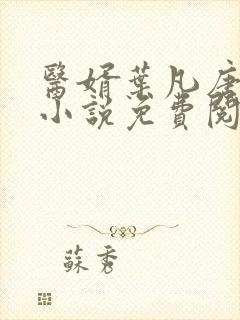 醫婿葉凡唐
小說免費閱
蘇秀